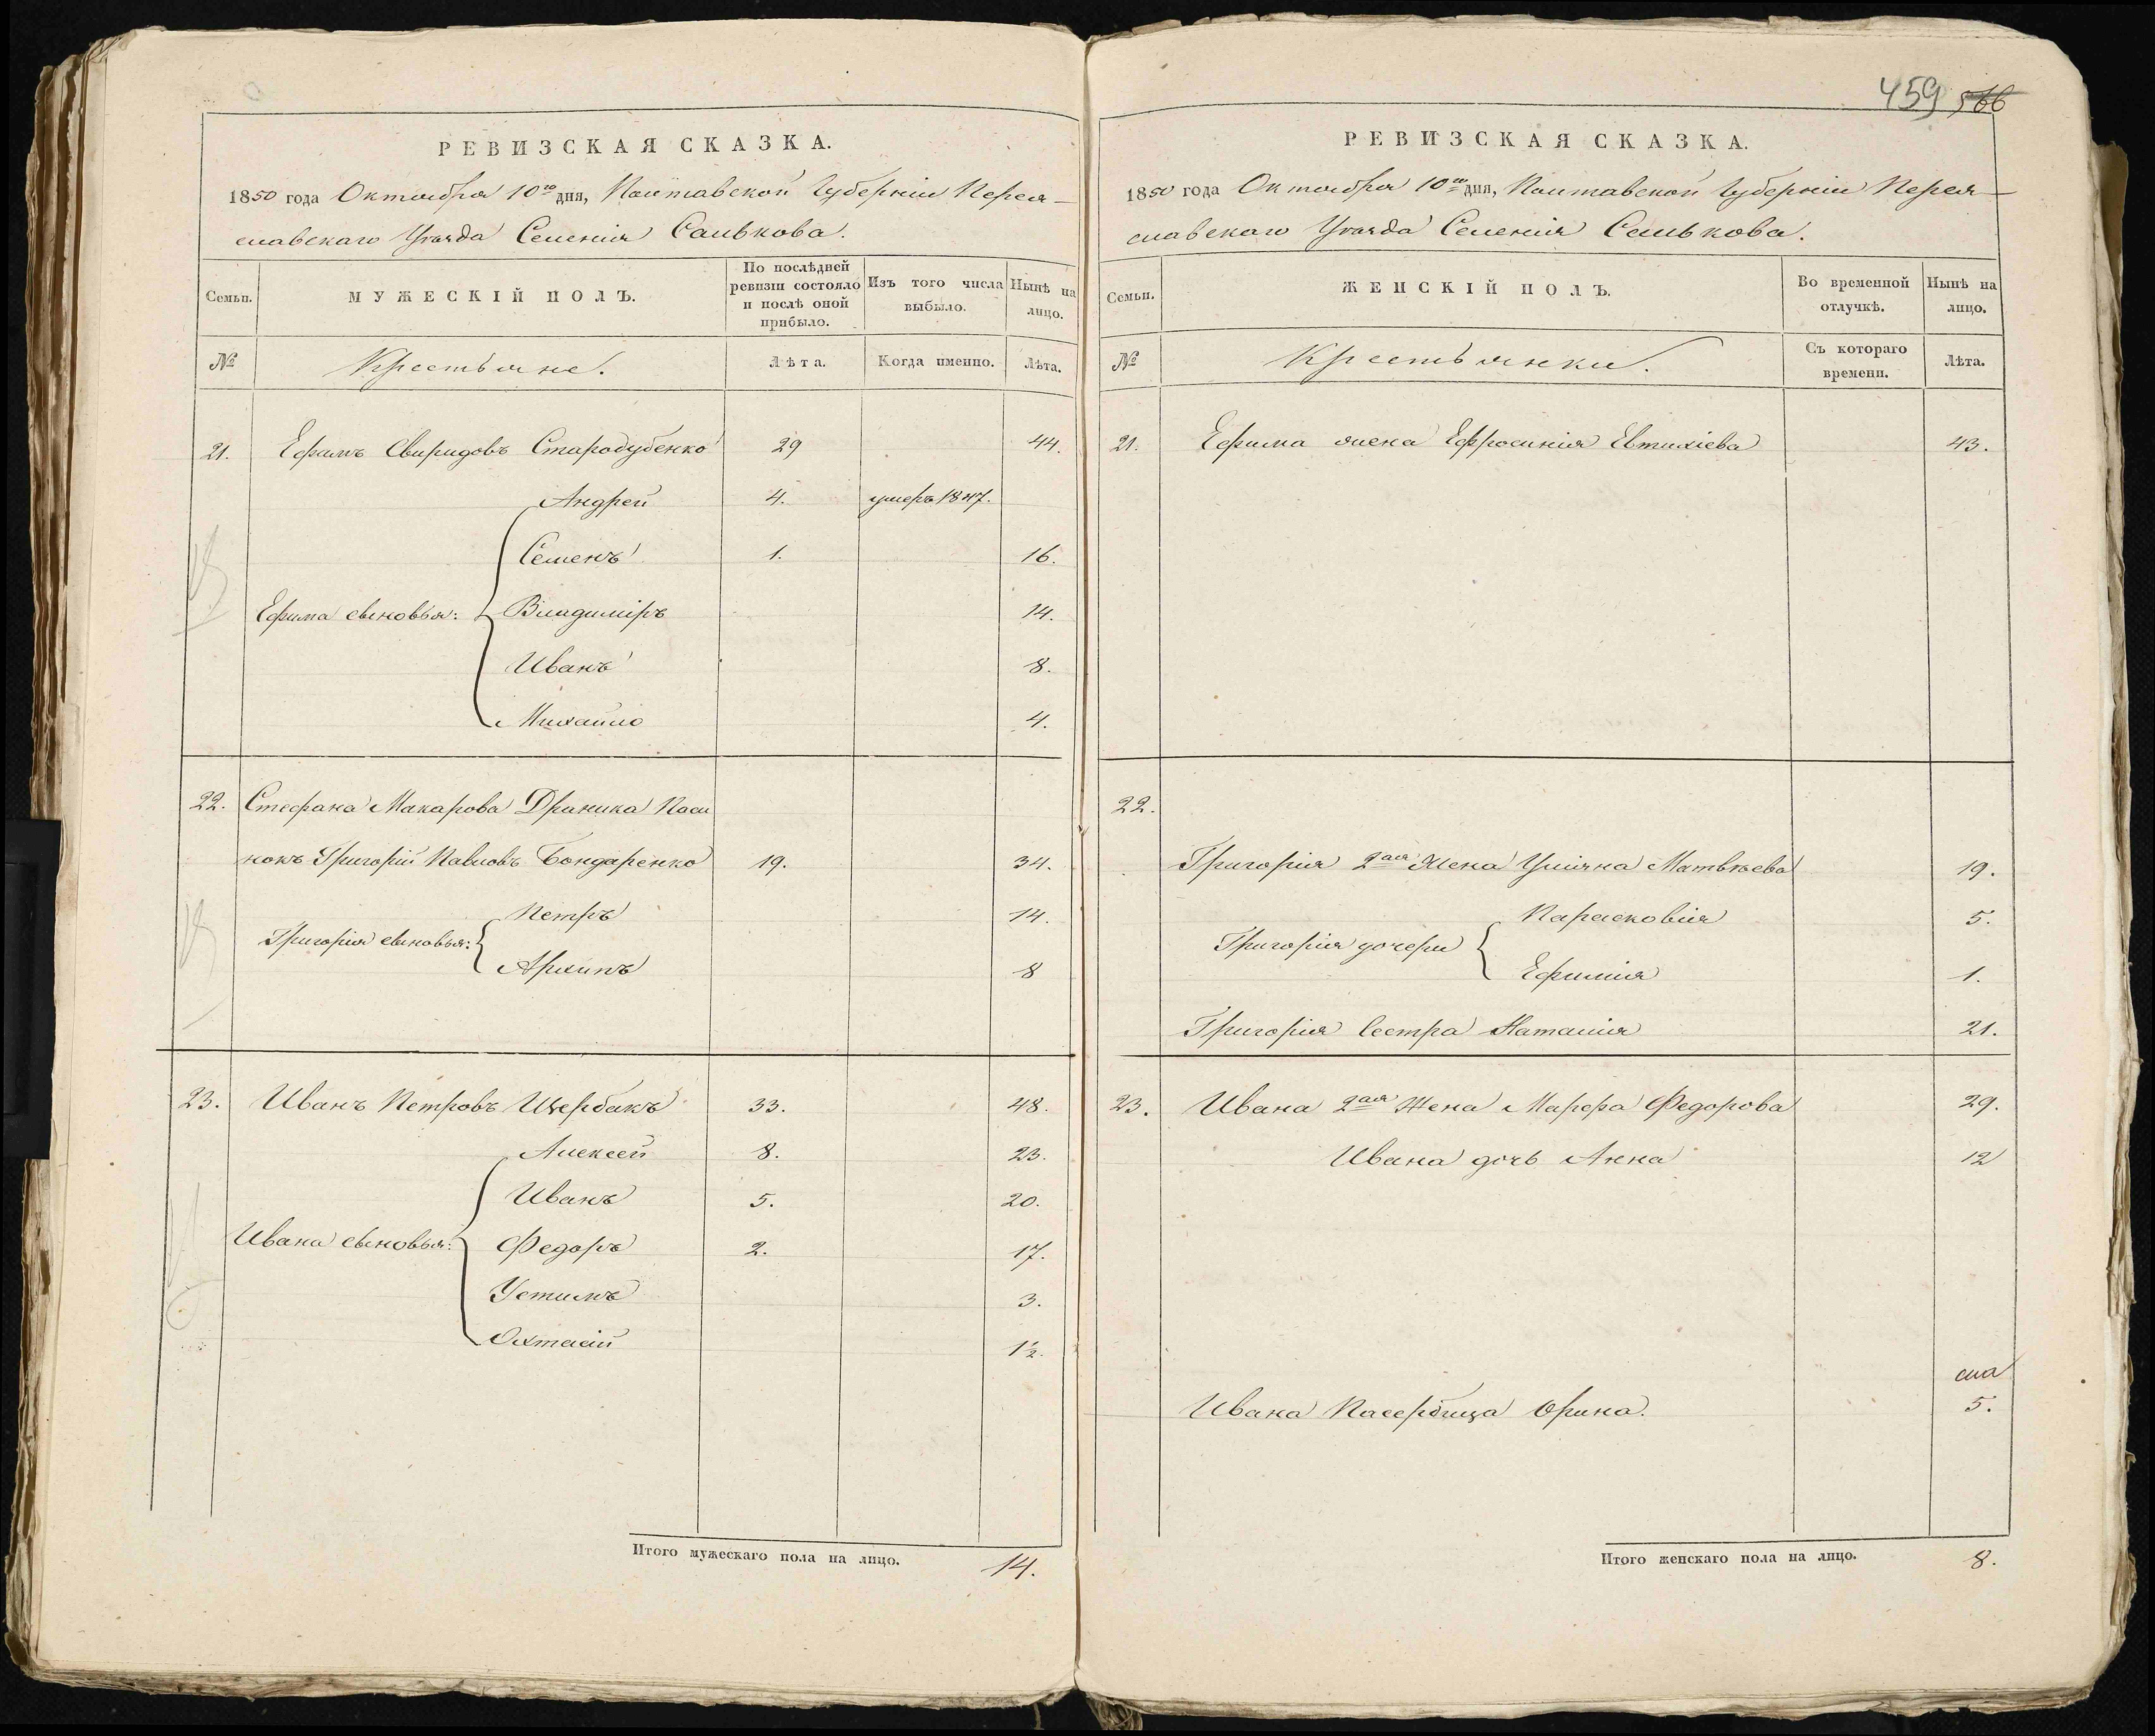 РЕВИЗСКАЯ СКАЗКА.
1850 года Октября 10го дня, Полтавской Губерніи Перея-
славскаго Уѣзда Селенія Салькова.
Семьи.
МУЖЕСКІЙ ПОЛЪ.
По послѣдней ревизіи состояло и послѣ оной прибыло.
Изъ того числа выбыло.
Нынѣ на лицо.
№
Крестьяне.
Лѣта.
Когда именно.
Лѣта.
21. Ефимъ Свиридовъ Стародубенко 29 44.
Андрей 4. умеръ 1847.
Семенъ 1. 16.
Ефима сыновья: Владиміръ 14.
Иванъ 8.
Михайло 4.
22. Стефана Макарова Драника Паси
нокъ Григорій Павловъ Бондаренко 19. 34.
Петръ 14.
Григорія сыновья:
Архипъ 8
23. Иванъ Петровъ Щербакъ 33. 48.
Алексей 8. 23.
Иванъ 5. 20.
Ивана сыновья: Федоръ 2. 17.
Устимъ 3.
1½.
Итого мужескаго пола на лицо. 14.
459 566
РЕВИЗСКАЯ СКАЗКА.
1850 года Октября 10го дня, Полтавской Губерніи Перея-
славскаго Уѣзда Селенія Салькова.
Семьи.
ЖЕНСКІЙ ПОЛЪ.
Во временной отлучкѣ.
Нынѣ на лицо.
№
Крестьянки.
Съ котораго времени.
Лѣта.
21. Ефима жена Ефросинія Евтихіева 43.
22.
Григорія 2ая Жена Уліяна Матвѣева 19.
Парасковія 5.
Григорія дочери
Ефимія 1.
Григорія Сестра Наталія 21.
23. Ивана 2ая Жена Марфа Федорова 29.
Ивана дочь Анна 12
Ивана Пасербица Орина. 5.
Итого женскаго пола на лицо. 8.